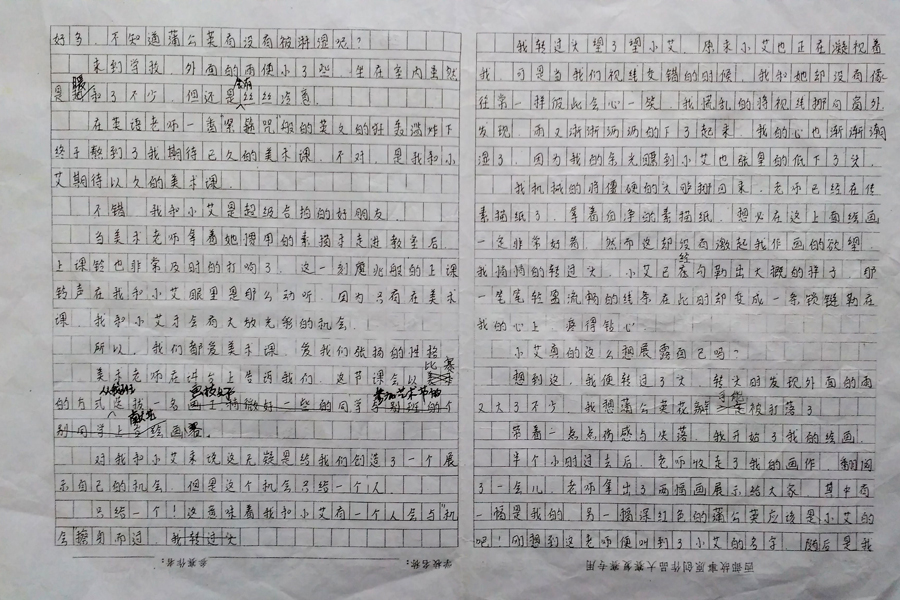 好多，不知道蒲公英有没有被淋湿呢？
来到学校，外面的雨便小了些，坐在室内虽然
是暖和了不少，但还是会有丝丝凉意。
在英语老师一番"紧箍咒"般的英文的狂轰滥炸下
终于熬到了我期待已久的美术课，不对，是我和小
艾期待以久的美术课。
不错，我和小艾是超级合拍的好朋友。
当美术老师拿着她惯用的素描手走进教室后，
上课铃也非常及时的打响了，这一刻魔兆般的上课
铃声在我和小艾眼里是那么动听，因为只有在美术
课，我和小艾才会有大放光彩的机会。
所以，我们都爱美术课，爱我们张扬的性格
美术老师在讲台上告诉我们，这节课会以比赛
的方式选找一名画工稍微好一些的同学参加艺术节
别同学上台绘画
对我和小艾来说这无疑是给我们创造了一个展
示自己的机会，但是这个机会只给一个人。
只给一个！这意味着我和小艾有一个人会与"机
会擦身而过，我转过头
参赛作者：
学校名称：
我转过头望了望小艾，原来小艾也正在凝视着
我，可是当我们视线交错的时候，我和她却没有像
往常一样彼此会心一笑，我慌乱的将视线挪向窗外
发现，雨又淅淅沥沥的下了起来，我的心也渐渐潮
湿了，因为我的余光瞟到小艾也张皇的低下了头。
我机械的将僵硬的头颅挪回来，老师已经在传
素描纸了，拿着白净的素描纸，想必在这上面绘画
一定非常好看，然而这却没有激起我作画的欲望，
我悄悄的转过头，小艾已经在勾勒出大概的样子，那
一笔笔轻盈流畅的线条在此时却变成一条锁链勒在
我的心上，疼得钻心。
小艾真的这么想展露自己吗？
想到这，我便转过了头，转头时发现外面的雨
又大了不少，我想蒲公英花可能被打落了
带着一点点伤感与失落，我开始了我的绘画。
半个小时过去后，老师收走了我的画作，翻阅
了一会儿，老师拿出了两幅画展示给大家，其中有
一幅是我的，另一幅深红色的蒲公英应该是小艾的
吧！刚想到这老师便叫到了小艾的名字，随后是我
西部故事原创作品大赛复赛专用